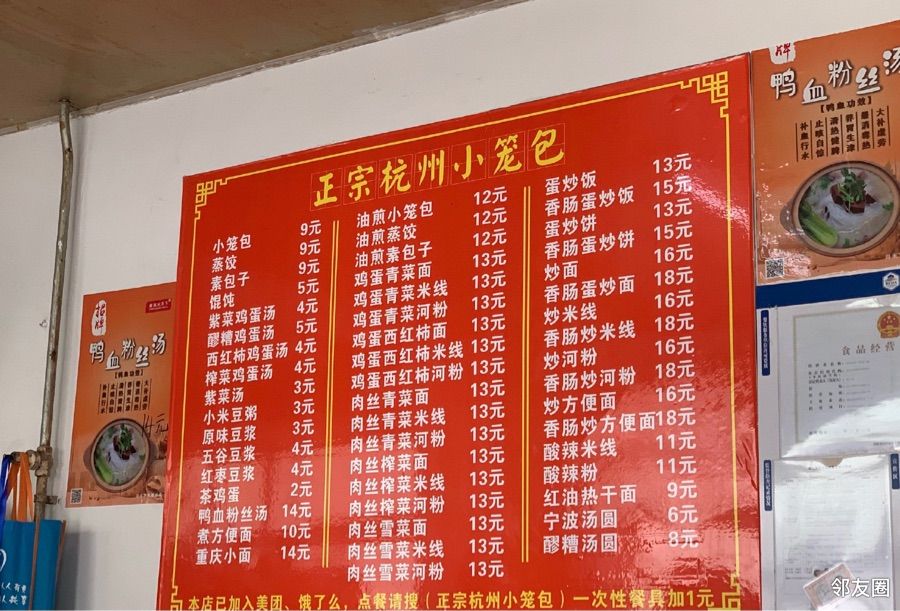 正宗杭州小笼包
小笼包 9元
蒸饺 9元
素包子 9元
馄饨 5元
紫菜鸡蛋汤 4元
醪糟鸡蛋汤 5元
西红柿鸡蛋汤 4元
榨菜鸡蛋汤 4元
紫菜汤 3元
小米豆粥 3元
原味豆浆 3元
五谷豆浆 4元
红枣豆浆 4元
茶鸡蛋 2元
鸭血粉丝汤 14元
煮方便面 10元
重庆小面 14元
油煎小笼包 12元
油煎蒸饺 12元
油煎素包子 12元
鸡蛋青菜面 13元
鸡蛋青菜米线 13元
鸡蛋青菜河粉 13元
鸡蛋西红柿面 13元
鸡蛋西红柿米线 13元
鸡蛋西红柿河粉 13元
肉丝青菜面 13元
肉丝青菜米线 13元
肉丝青菜河粉 13元
肉丝榨菜面 13元
肉丝榨菜米线 13元
肉丝榨菜河粉 13元
肉丝雪菜面 13元
肉丝雪菜米线 13元
肉丝雪菜河粉 13元
蛋炒饭 13元
香肠蛋炒饭 15元
蛋炒饼 13元
香肠蛋炒饼 15元
炒面 16元
香肠蛋炒面 18元
炒米线 16元
香肠炒米线 18元
炒河粉 16元
香肠炒河粉 18元
炒方便面 16元
香肠炒方便面 18元
酸辣米线 11元
酸辣粉 11元
红油热干面 9元
宁波汤圆 6元
醪糟汤圆 8元
本店已加入美团、饿了么，点餐请搜（正宗杭州小笼包）一次性餐具加1元
招牌
鸭血粉丝汤
【鸭血功效】
14元
牌
鸭血粉丝汤
【鸭血功效】
大补虚劳
养胃生津
清热健脾
补血行水
食品经营
邻友圈